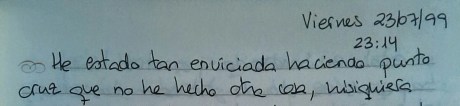 Viernes 23/07/99
23:14
He estado tan enviciada haciendo punto
cruz que no he hecho otra cosa, nisiquiera